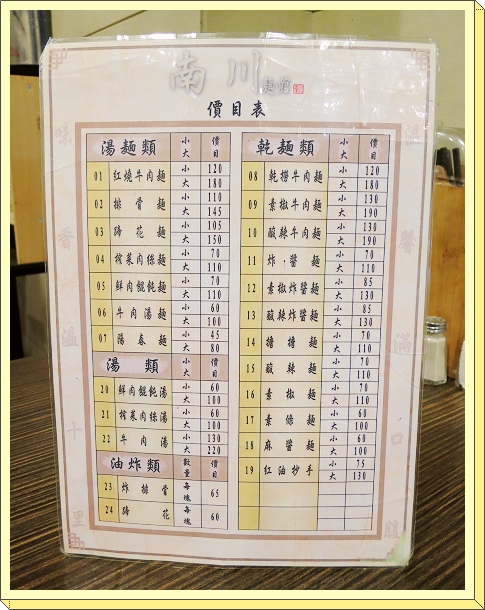 南川 麵館
價目表
湯麵類 小大 價目
01 紅燒牛肉麵 小 120 大 180
02 排骨麵 小 110 大 145
03 蹄花麵 小 105 大 150
04 榨菜肉絲麵 小 70 大 110
05 鮮肉餛飩麵 小 70 大 110
06 牛肉湯麵 小 60 大 100
07 陽春麵 小 45 大 80
湯類 小大 價目
20 鮮肉餛飩湯 小 60 大 100
21 榨菜肉絲湯 小 60 大 100
22 牛肉湯 小 130 大 220
油炸類 數量 價目
23 炸排骨 每塊 65
24 蹄花 每塊 60
乾麵類 小大 價目
08 乾撈牛肉麵 小 120 大 180
09 素椒牛肉麵 小 130 大 190
10 酸辣牛肉麵 小 130 大 190
11 炸醬麵 小 70 大 110
12 素椒炸醬麵 小 85 大 130
13 酸辣炸醬麵 小 85 大 130
14 擔擔麵 小 70 大 110
15 酸辣麵 小 70 大 110
16 素椒麵 小 70 大 110
17 素條麵 小 60 大 100
18 麻醬麵 小 60 大 100
19 紅油抄手 小 75 大 130
味香溫十里
馨滿口